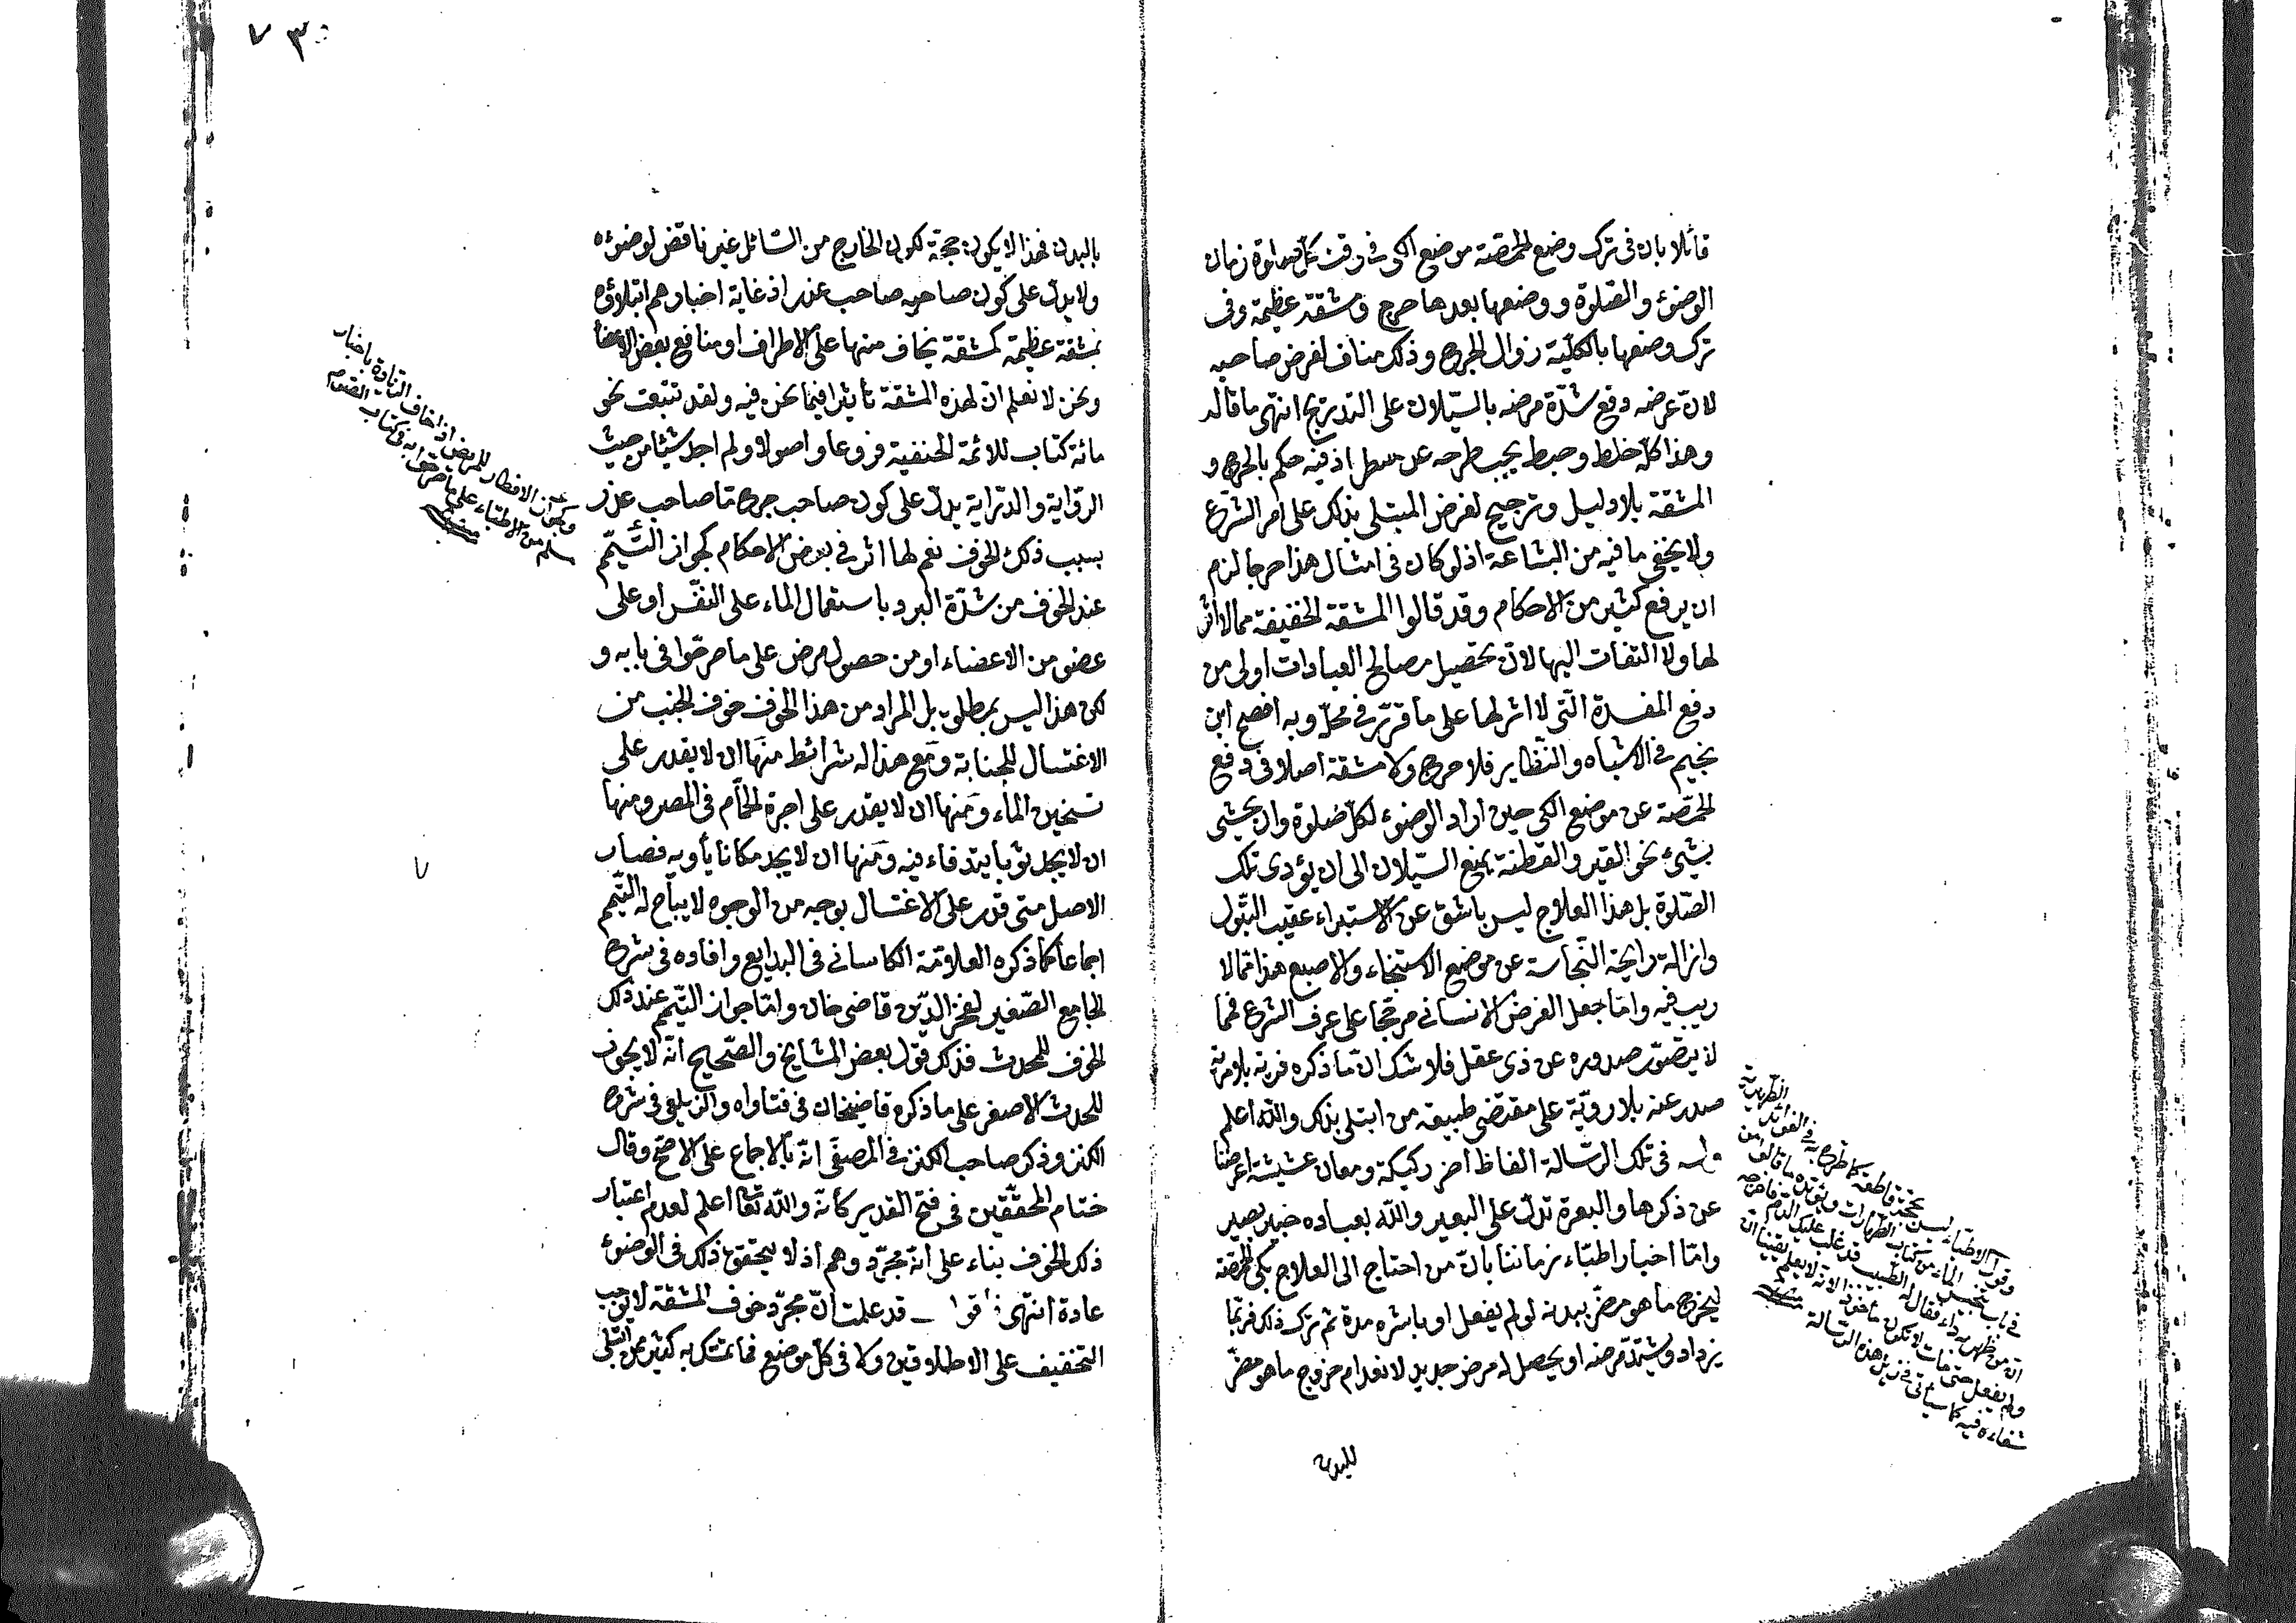 قائلا بان في ترك وضع الحمصة موضع الكي في وقت كل صلوة زمان
الوضوء والصّلوة ووضعها بعدها حرج ومشقّة عظيمة وفي
ترك وضعها بالكلّيّة زوال الجرح وذلك مناف لغرض صاحبه
لانّ غرضه دفع شدّة مرضه بالسّيلان على التدريج انتهى ما قاله
وهذا كلّه خلط وخبط يجب طرحه عن اذ فيه حكم بالحرج و
المشقة بلا دليل وترجيح لغرض المبتلى بذلك على امر الشّرع
ولا يخفى ما فيه من البشاعة اذ لو كان في امثال هذا حرجا لزم
ان يرفع كثير من الاحكام وقد قالوا المشقة الخفيفة مما لا اثر
لها ولا التفات اليها لانّ تحصيل مصالح العبادات اولى من
دفع المفسدة الّتي لا اثر لها على ما قرّر في محلّه وبه افصح ابن
نجيم في الاشباه والنّظاير فلا حرج ولا مشقة اصلا في دفع
الحمّصة عن موضع الكي حين اراد الوضوء لكلّ صلوة وان يحشى
بشيء نحو القير والقطنة يمنع السّيلان الى ان يؤدى تلك
الصّلوة بل هذا العلاج ليس باشق عن الاستبراء عقيب البّول
وازالة رايحة النّجاسة عن موضع الاستنجاء والاصبع هذا ممّا لا
ريب فيه وامّا جعل الغرض الانساني مرجّحا على عرف الشرع فمما
لا يتصوّر صدوره عن ذي عقل فلا شك انّ ما ذكره فرية بلا مرية
صدر عنه بلا رويّة على مقتضى طبيعة من ابتلى بذلك واللّه اعلم
وله في تلك الرّسالة الفاظ اخر ركيكة ومعان اعرضنا
عن ذكرها والبعرة تدلّ على البعير واللّه بعباده خبير بصير
وامّا اخبار اطبّاء زماننا بانّ من احتاج الى العلاج بكي الحمّصة
ليخرج ما هو مضرّ ببدنه لو لم يفعل او باشره مدة ثم ترك ذلك فربّما
يزداد ويشتدّ مرضه او يحصل له مرض جديد لانعدام خروج ما هو مضرّ
للبدن
وقول الاطبّاء ليس بحجّة قاطعة كما صرّح به في الفوائد الظّهيرية
في باب الماء من كتاب الطّهارات ويؤيّده ما قالوا من
انّ من ظهر به داء فقال له الطّبيب قد غلب عليك الدّم فاخرجه
ولم يفعل حتى مات لا يكون مأخوذا لانّه لا يعلم يقينا انّ
شفاءه فيه كما سيأتي في ذيل هذه الرّسالة
منه
٧٣
بالبدن فهذا لا يكون حجّة لكون الخارج من السّائل غير ناقض لوضوئه
ولا يدلّ على كون صاحبه صاحب عذر اذ غاية اخبارهم ابتلاؤه
بمشقة عظيمة كمشقة يخاف منها على الاطراف او منافع بعض الاعضاء
ونحن لا نعلم انّ لهذه المشقة تأثيرا فيما نحن فيه ولقد تتبّعت نحو
مائة كتاب للائمّة الحنفية فروعا واصولا ولم اجد شيئا من حيث
الرّواية والدّراية يدلّ على كون صاحب جرح مّا صاحب عذر
بسبب ذلك الخوف نعم لها اثر في بعض الاحكام كجواز التّيمّم
عند الخوف من شدّة البرد باستعمال الماء على النّفس او على
عضو من الاعضاء او من حصول مرض على ما صرّحوا في بابه و
لكن هذا ليس بمطلوب بل المراد من هذا الخوف خوف الجنب من
الاغتسال للجنابة ومع هذا له شرائط منها ان لا يقدر على
تسخين الماء ومنها ان لا يقدر على اجرة الحمّام في المصر ومنها
ان لا يجد ثوبا يتدفاء فيه ومنها ان لا يجد مكانا يأويه فصار
الاصل متى قدر على الاغتسال بوجه من الوجوه لا يباح له التيّمم
اجماعا كما ذكره العلاّمة الكاساني في البدايع وافاده في شرح
الجامع الصّغير لفخر الدّين قاضي خان وامّا جواز التيّمم عند ذلك
الخوف للمحدث فذلك قول بعض المشايخ والصّحيح انّه لا يجوز
للحدث الاصغر على ما ذكره قاضيخان في فتاواه والزّيلعي في شرح
الكنز وذكر صاحب الكنز في المصفّى انّه بالاجماع على الاصحّ وقال
ختام المحقّقين في فتح القدير كأنّه واللّه تعا اعلم لعدم اعتبار
ذلك الخوف بناء على انّه مجرّد وهم اذ لا يتحقق ذلك في الوضوء
عادة انتهى قد علمت انّ مجرّد خوف المشقة لا يوجب
التخفيف على الاطلاق ولا في كلّ موضع فما تمسّك به كثير ممن ابتلى
وكجواز الافطار للمريض اذا خاف الزّيادة باخبار
مسلم من الاطبّاء على ما صرّحوا به في كتاب الصّوم
منه
٧